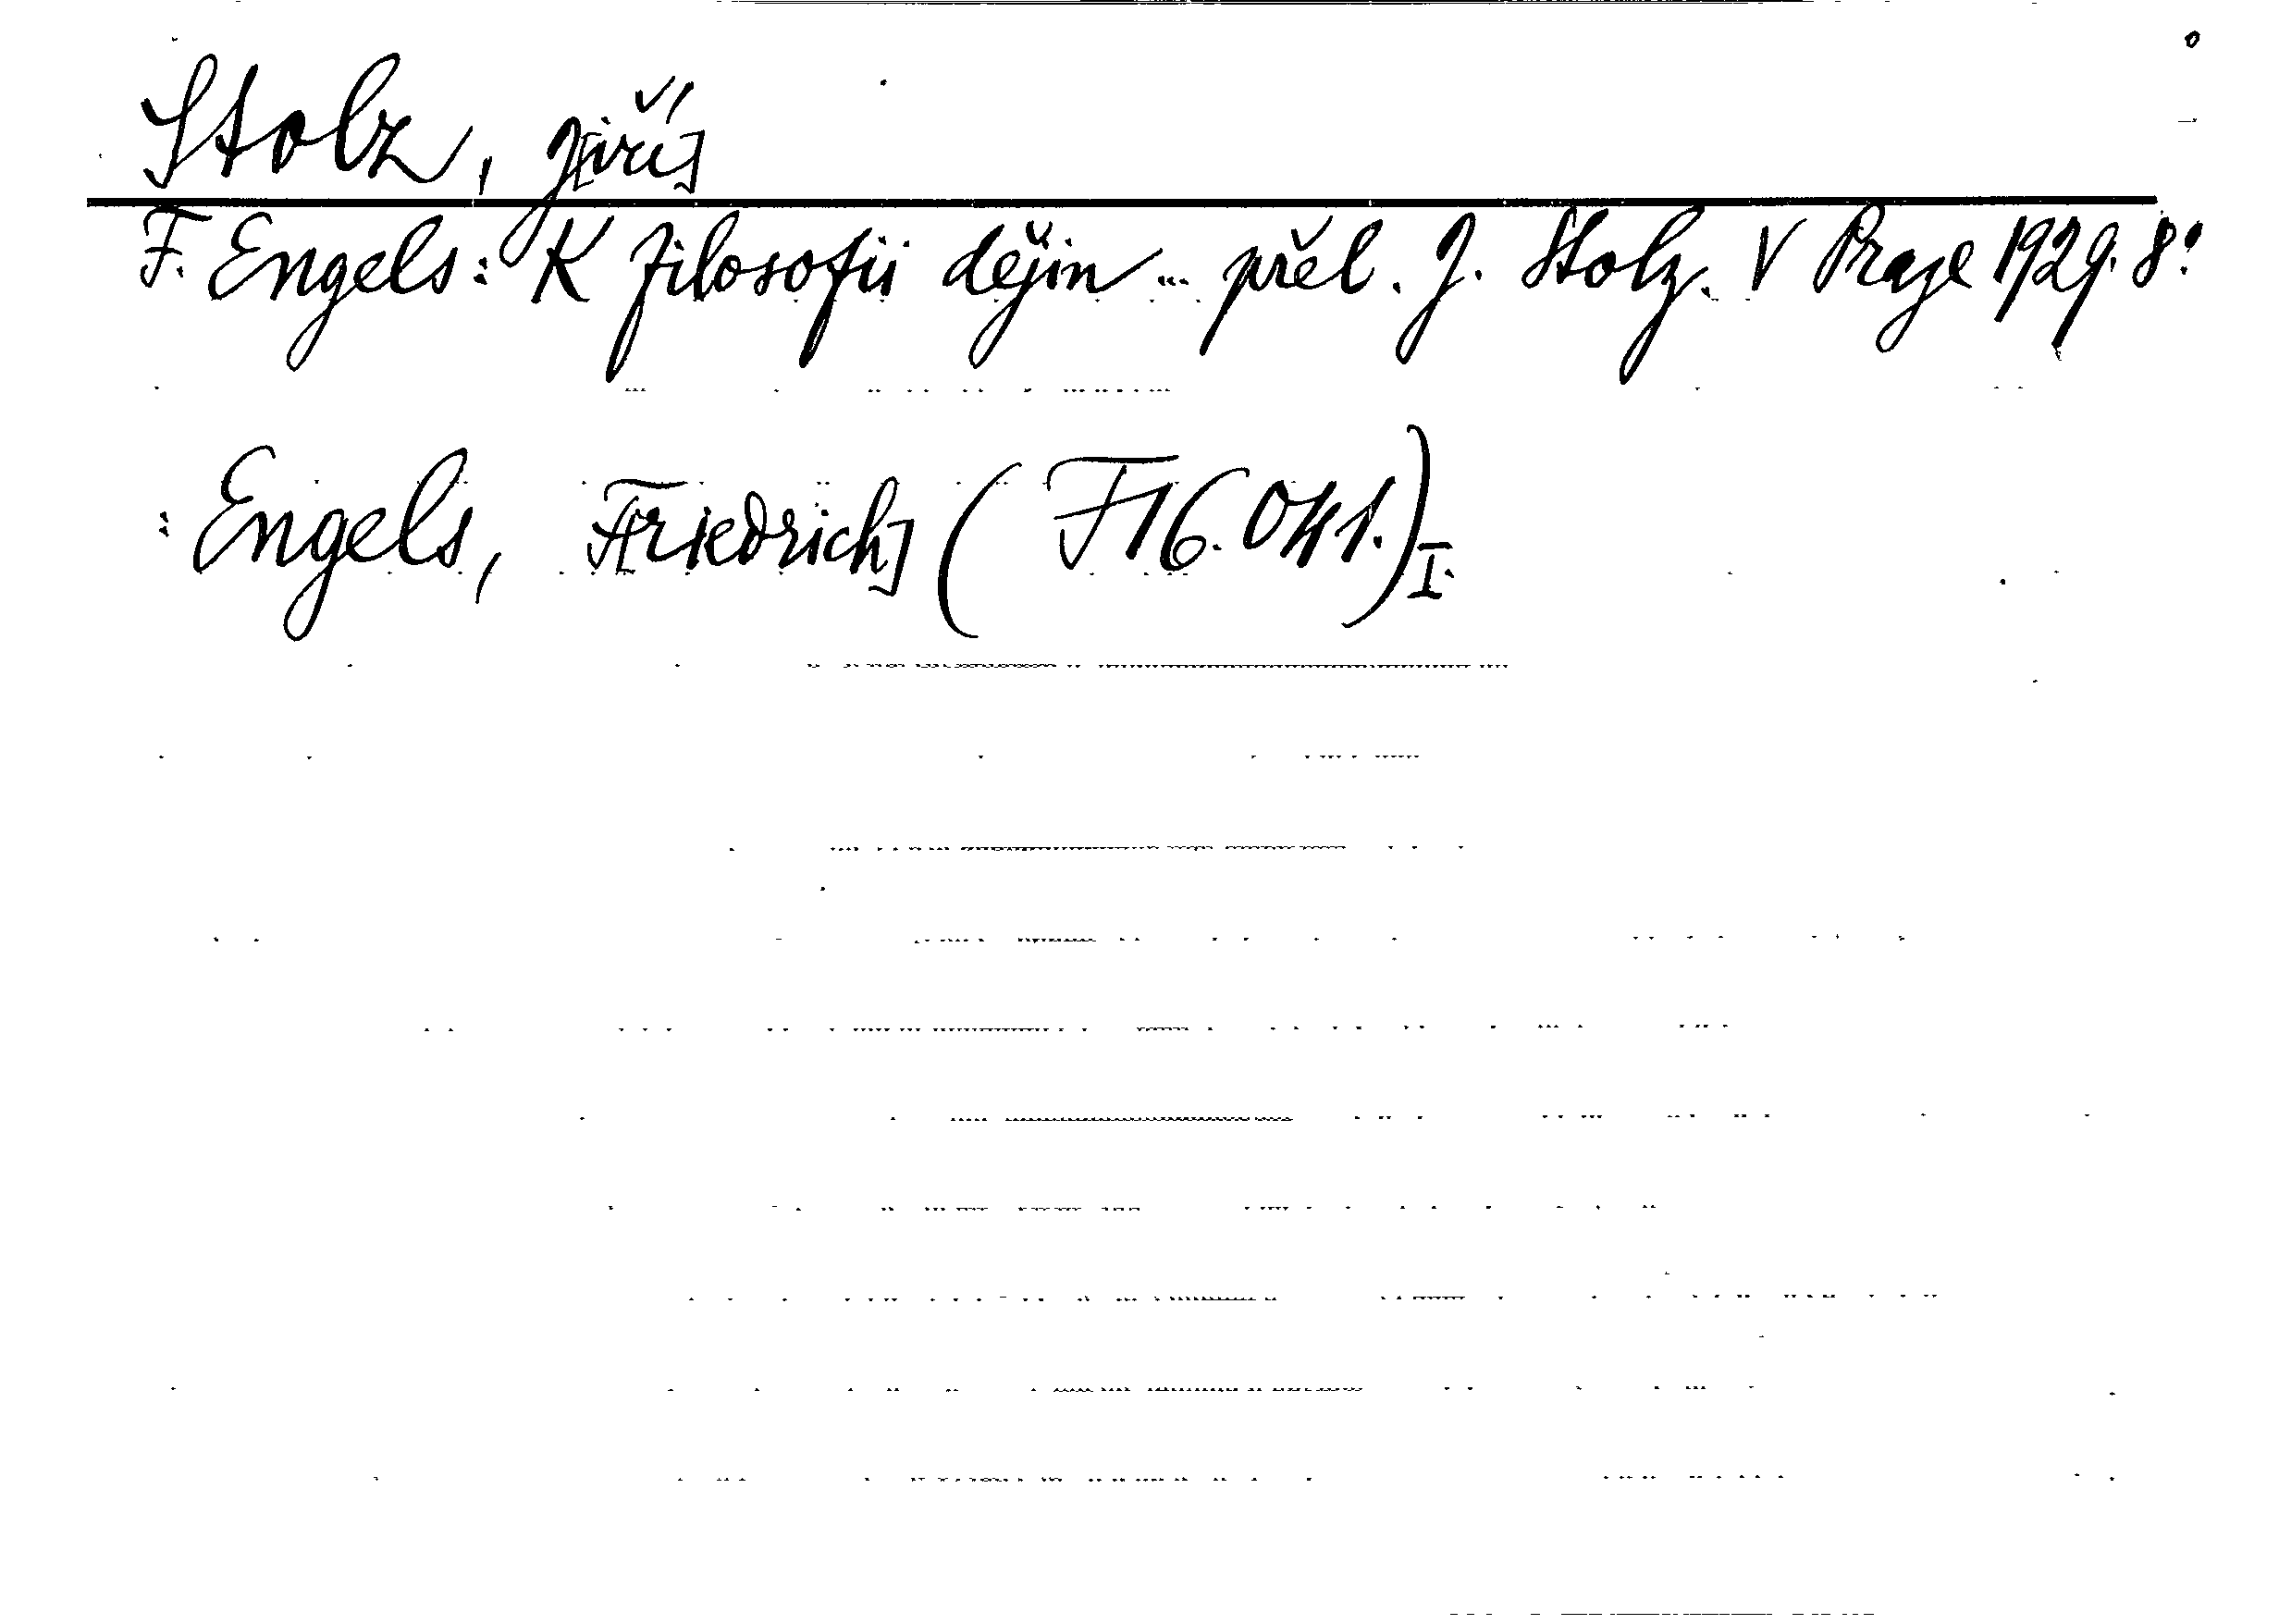 Stolz, J[iří]
F. Engels: K filosofii dějin... přel. J. Stolz. V Praze 1929. 8°.
: Engels, F[riedrich] (F 16.041.) I.